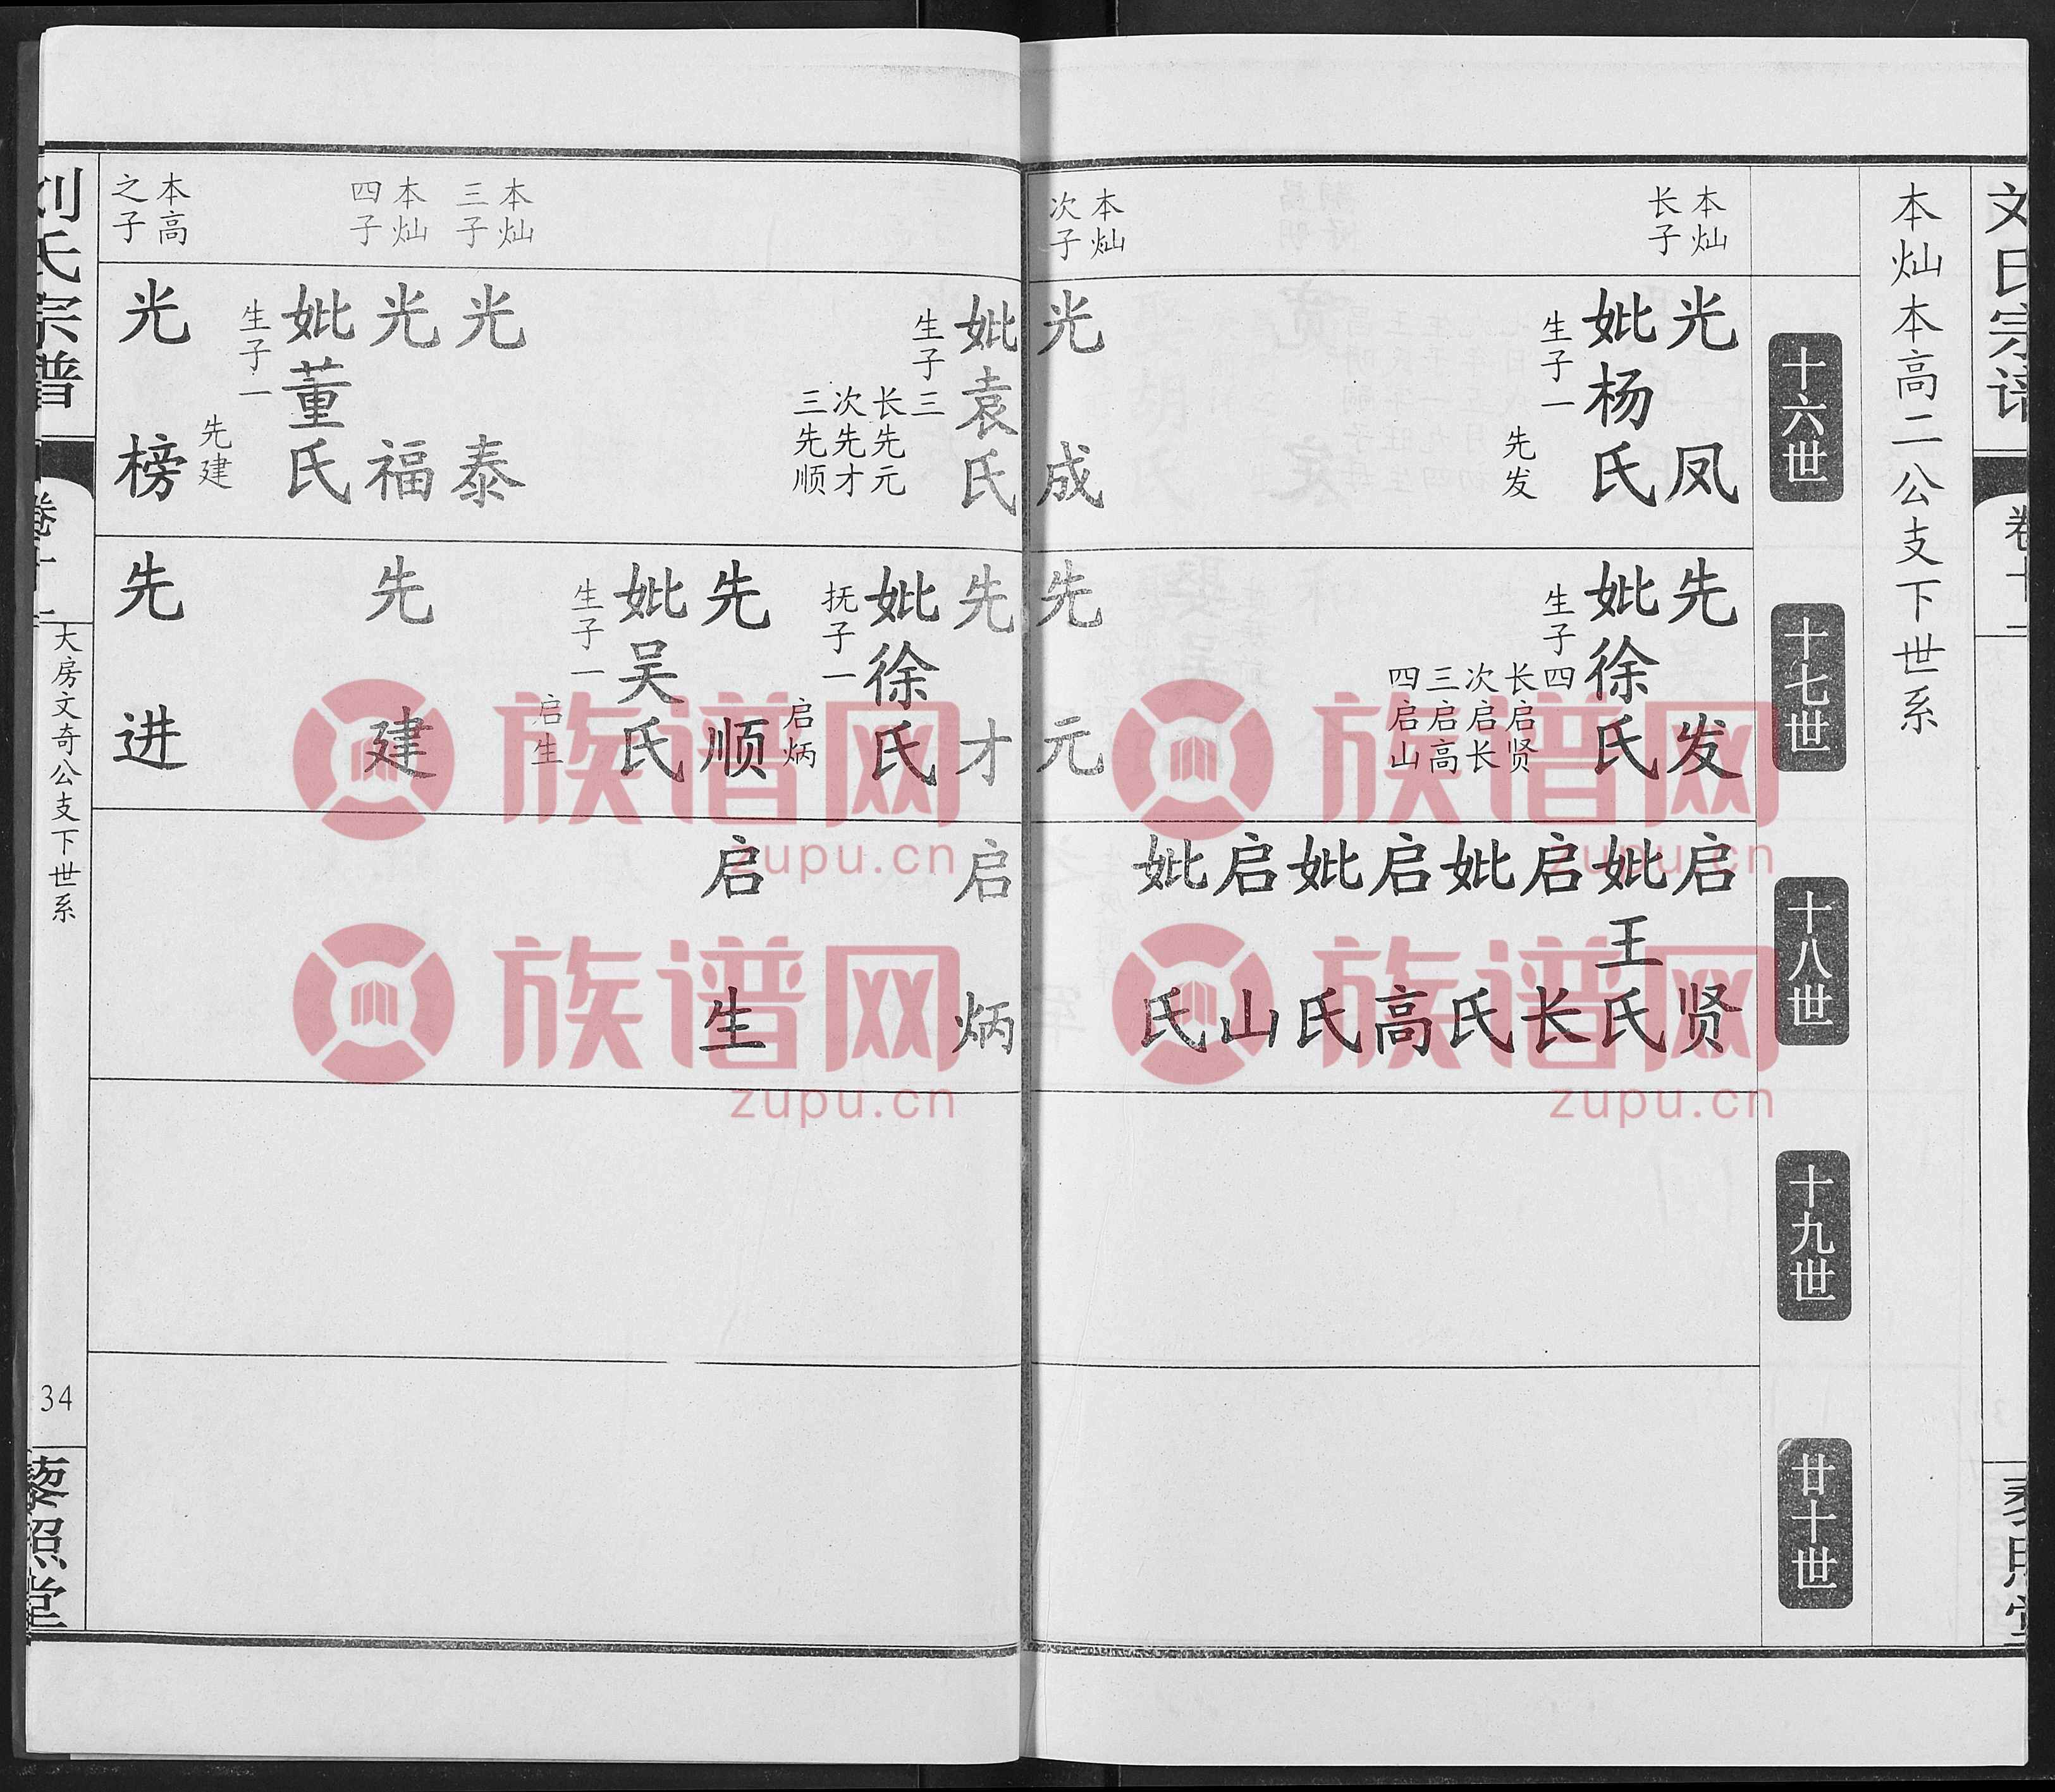 本灿本高二公支下世系
十六世
十七世
十八世
十九世
廿十世
本灿
长子
光凤
妣杨氏
生子一
先发
先发
妣徐氏
生子四
长启贤
次启长
三启高
四启山
启贤
妣王氏
启长
妣氏
启高
妣氏
启山
妣氏
本灿
次子
光成
妣袁氏
生子三
长先元
次先才
三先顺
先元
先才
妣徐氏
抚子一
启炳
启炳
先顺
妣吴氏
生子一
启生
启生
本灿
三子
光泰
本灿
四子
光福
妣董氏
生子一
先建
先建
本高
之子
光榜
先进
刘氏宗谱
卷十二
天房文奇公支下世系
34
黎照堂
族谱网
zupu.cn
族谱网
zupu.cn
族谱网
zupu.cn
族谱网
zupu.cn